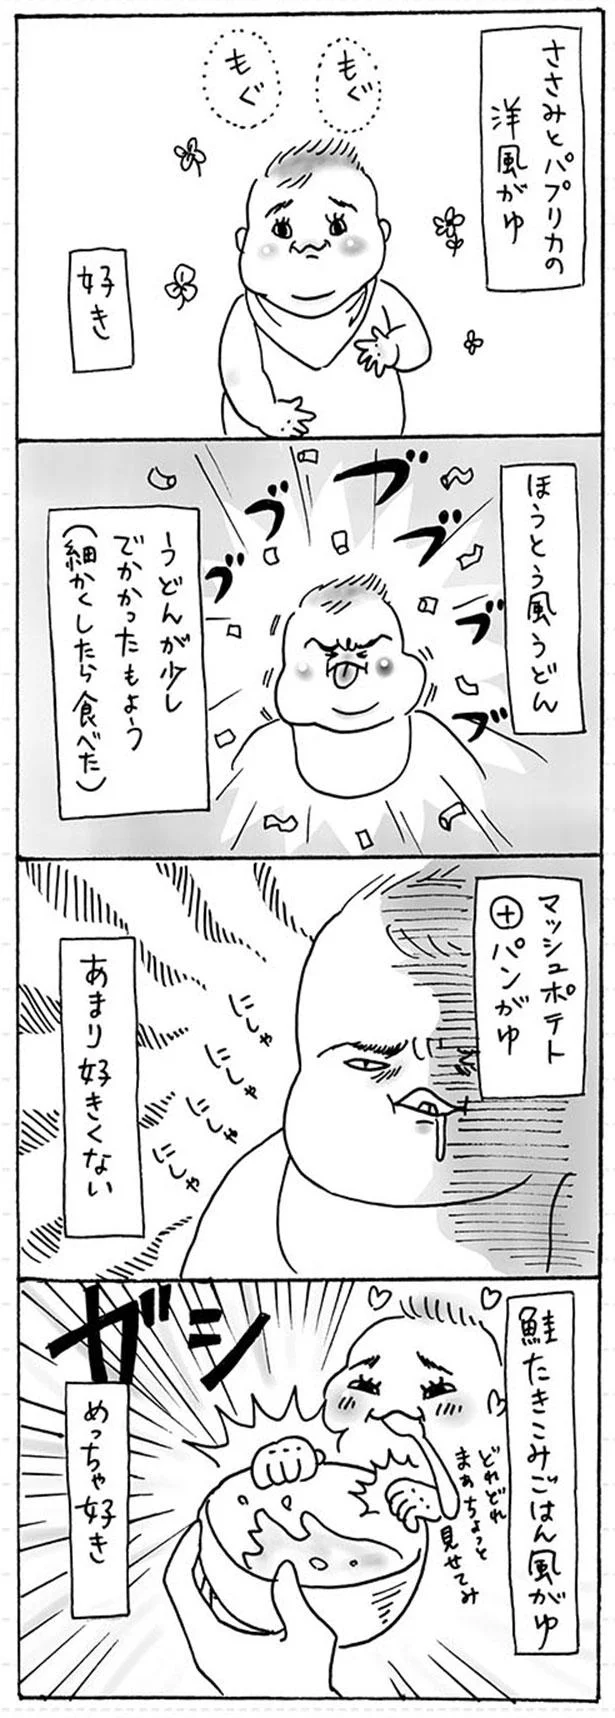 ささみとパプリカの
洋風がゆ
もぐ
もぐ
好き
ほうとう風うどん
ブッ
ブッ
ブッ
ブッ
ブッ
ブッ
うどんが少し
でかかったもよう
(細かくしたら食べた)
マッシュポテト
⊕パンがゆ
にしゃ
にしゃ
にしゃ
にしゃ
あまり好きくない
鮭たきこみごはん風がゆ
どれどれ
まぁちょっと
見せてみ
ガシ
めっちゃ好き